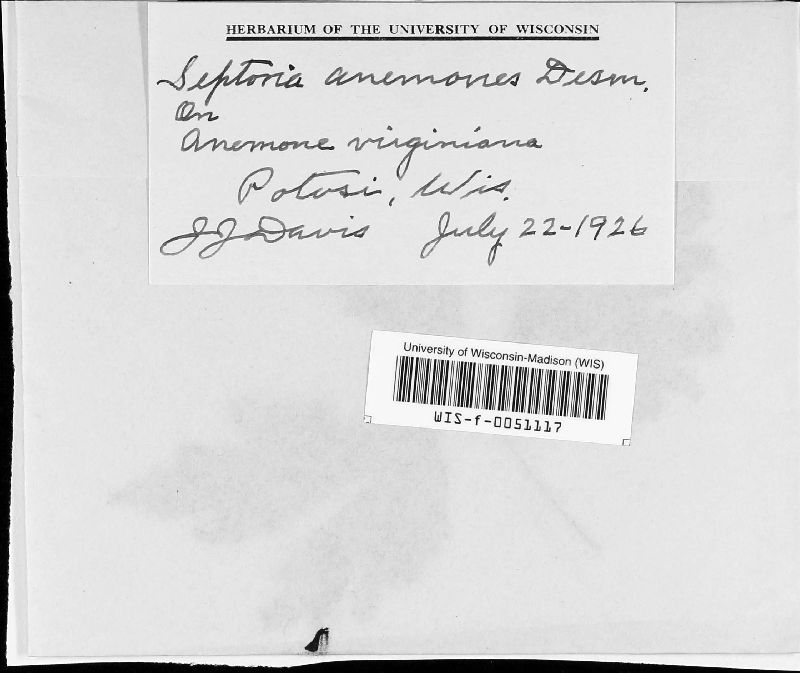 HERBARIUM OF THE UNIVERSITY OF WISCONSIN
Septoria anemones Desm.
On
Anemone virginiana
Potosi, Wis.
JJ Davis July 22-1926
University of Wisconsin-Madison (WIS)
WIS-f-0051117